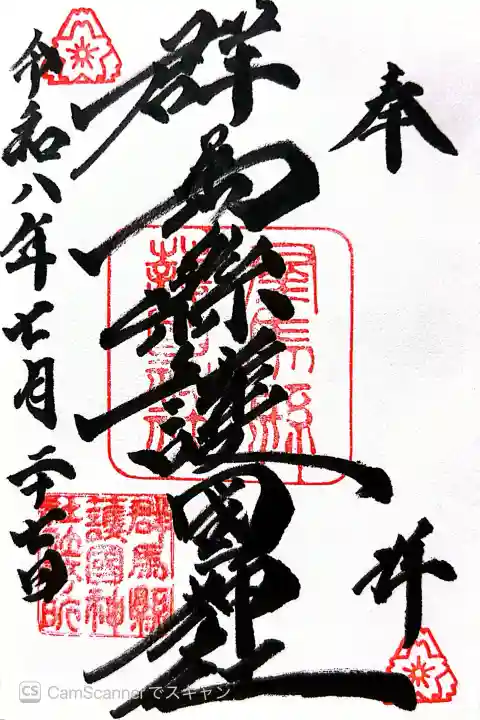 奉拝
群馬縣護國神社
令和八年七月二十七日
群馬縣護國神社
群馬縣
護國神
社社務所
CS CamScannerでスキャン